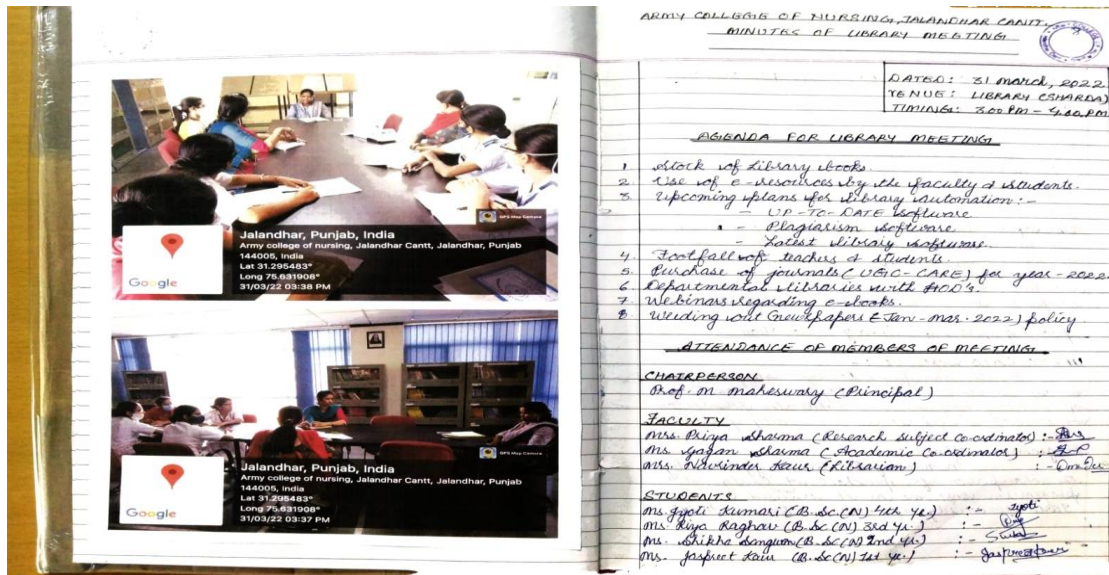 GPS Map Camera
Jalandhar, Punjab, India
Army college of nursing, Jalandhar Cantt, Jalandhar, Punjab
144005, India
Lat 31.295483°
Long 75.631908°
31/03/22 03:38 PM
Google
GPS Map Camera
Jalandhar, Punjab, India
Army college of nursing, Jalandhar Cantt, Jalandhar, Punjab
144005, India
Lat 31.295483°
Long 75.631908°
31/03/22 03:37 PM
Google
ARMY COLLEGE OF NURSING, JALANDHAR CANTT.
MINUTES OF LIBRARY MEETING
DATED: 31 march, 2022
VENUE: LIBRARY (SHARDA)
TIMING: 3.00 PM - 4.00 PM
AGENDA FOR LIBRARY MEETING
1 Stock of Library books.
2. Use of e-resources by the faculty & students.
3. Upcoming plans for library automation:-
- UP-TO-DATE software
- Plagiarism software
- Latest library software.
4. Footfall of teachers & students.
5. Purchase of journals (UGC-CARE) for year-2022
6 Departmental libraries with HOD's.
7 Webinars regarding e-books.
8 Weeding out (newspapers Jan-mar. 2022) policy
ATTENDANCE OF MEMBERS OF MEETING
CHAIRPERSON
Prof. M Maheswary (Principal)
FACULTY
Mrs. Priya Sharma (Research subject Co-ordinator) :-
Ms. Gagan Sharma (Academic Co-ordinator) :-
Mrs. Navrinder Kaur (Librarian) :-
STUDENTS
Ms. Jyoti Kumari (B.Sc(N) 4th Yr.) :- Jyoti
Ms. Riya Raghav (B.Sc(N) 3rd Yr.) :-
Ms. Shikha Sangwan (B.Sc(N) 2nd Yr.) :-
Ms. Jaspreet Kaur (B.Sc(N) 1st Yr.) :- Jaspreet Kaur